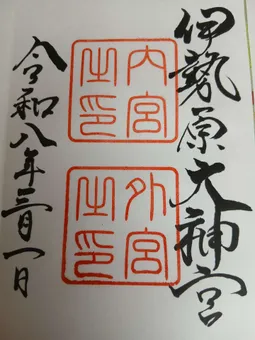 伊勢原大神宮
内宮之印
外宮之印
令和八年三月一日